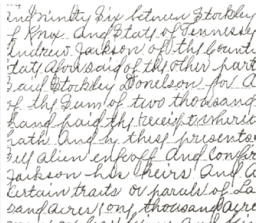 and ninety Six between Stockley
of Knox And State of Tennessee
Andrew Jackson of the Count
State aforesaid of the other part
Said Stockley Donelson for A
of the Sum of two thousand
hand paid the receipt
hath And by these presents
Sell alien enfeoff And confir
Jackson his heirs And a
Certain tracts or parcels of La
sand acres (one thousand acre